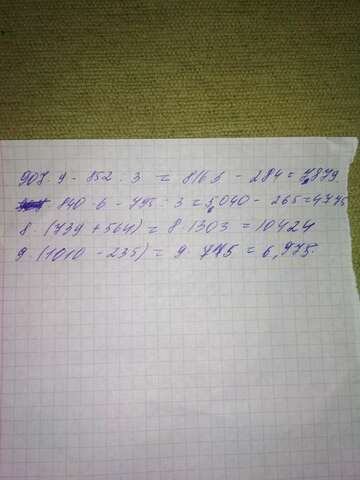 907 · 9 - 852 : 3 = 8163 - 284 = 7,879
840 · 6 - 795 : 3 = 5,040 - 265 = 4775
8 · (739 + 564) = 8 · 1303 = 10424
9 (1010 - 235) = 9 · 775 = 6,975.